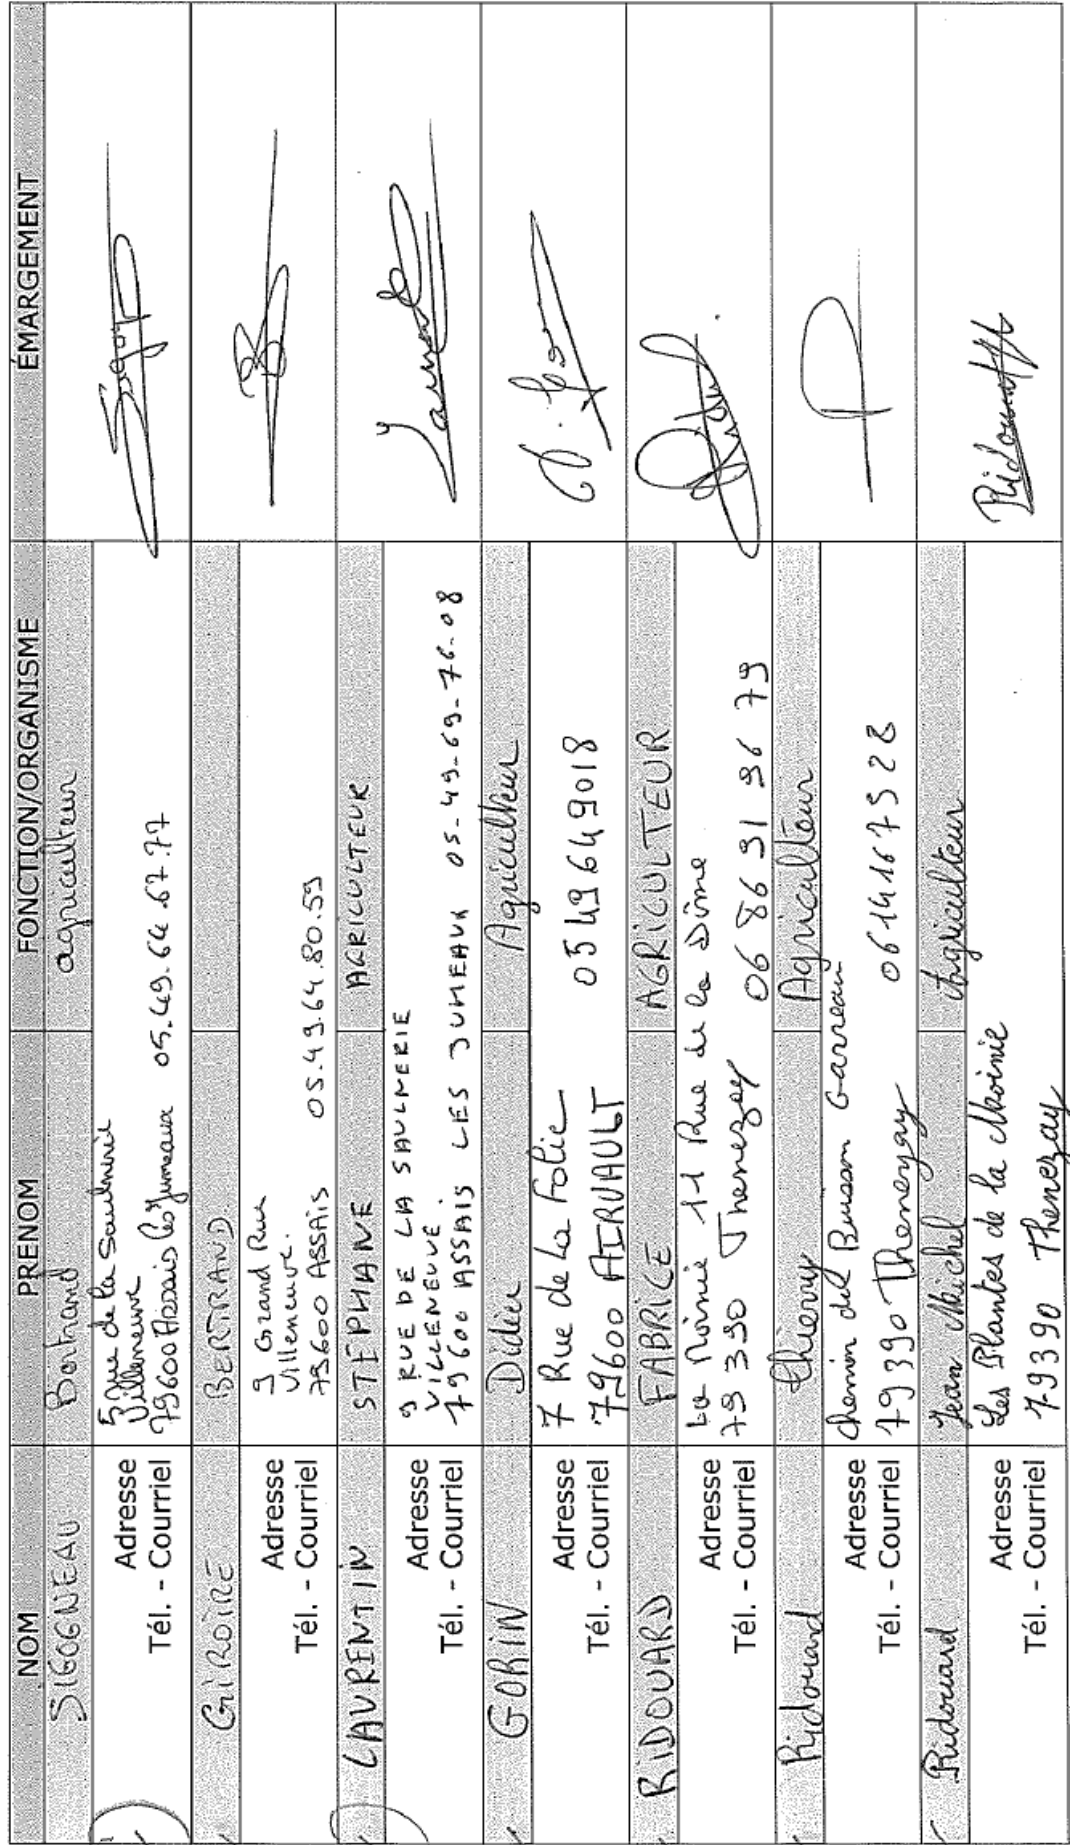 NOM PRENOM FONCTION/ORGANISME ÉMARGEMENT
SIGOGNEAU Bertrand agriculteur
Adresse
Tél. - Courriel
5 rue de la Saulnerie
Villeneuve
79600 Assais les Jumeaux 05.49.64.67.77
GIROIRE BERTRAND
Adresse
Tél. - Courriel
9 Grand Rue
Villeneuve.
79600 ASSAIS 05.49.64.80.59
LAURENTIN STEPHANE AGRICULTEUR
Adresse
Tél. - Courriel
9 RUE DE LA SAULNERIE
VILLENEUVE
79600 ASSAIS LES JUMEAUX 05-49-69-76-08
GORIN Didier Agriculteur
Adresse
Tél. - Courriel
7 Rue de La Folie
79600 AIRVAULT 0549649018
RIDOUARD FABRICE AGRICULTEUR
Adresse
Tél. - Courriel
La Moinie 11 Rue de la Dime
79 390 Thenezay 06 86 91 96 79
Ridouard Thierry Agriculteur
Adresse
Tél. - Courriel
chemin du Buisson Garreau
79390 Thenezay 0614167928
Ridouard Jean Michel Agriculteur
Adresse
Tél. - Courriel
Les Plantes de la Moinie
79390 Thenezay
Ridouard